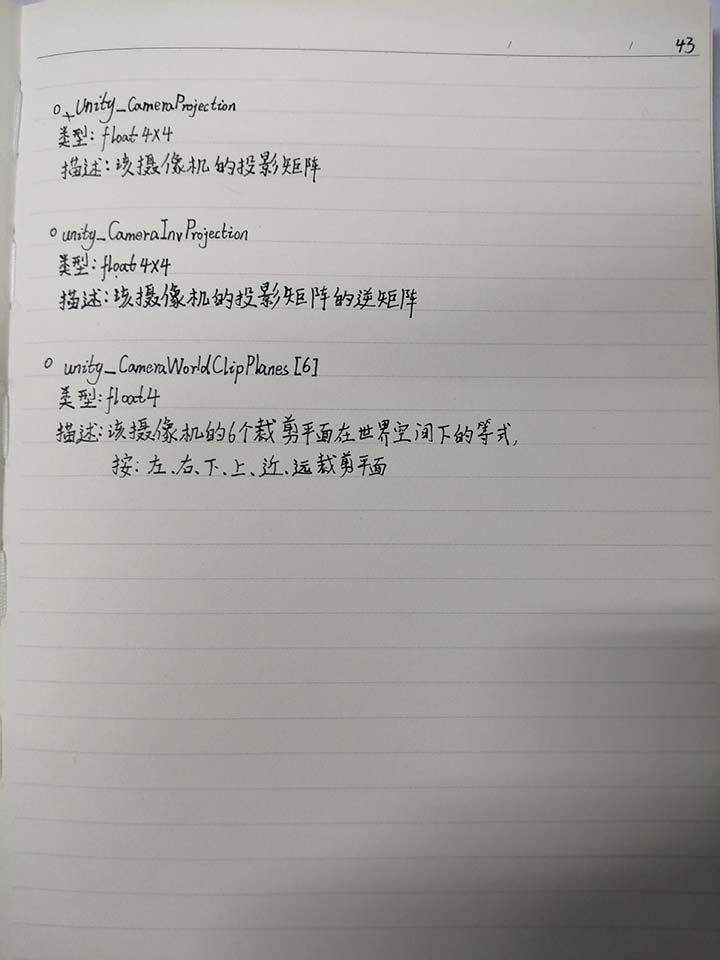 / / 43
○ Unity_CameraProjection
类型: float4x4
描述: 该摄像机的投影矩阵
○ unity_CameraInvProjection
类型: float4x4
描述: 该摄像机的投影矩阵的逆矩阵
○ unity_CameraWorldClipPlanes [6]
类型: float4
描述: 该摄像机的6个裁剪平面在世界空间下的等式,
按: 左、右、下、上、近、远裁剪平面